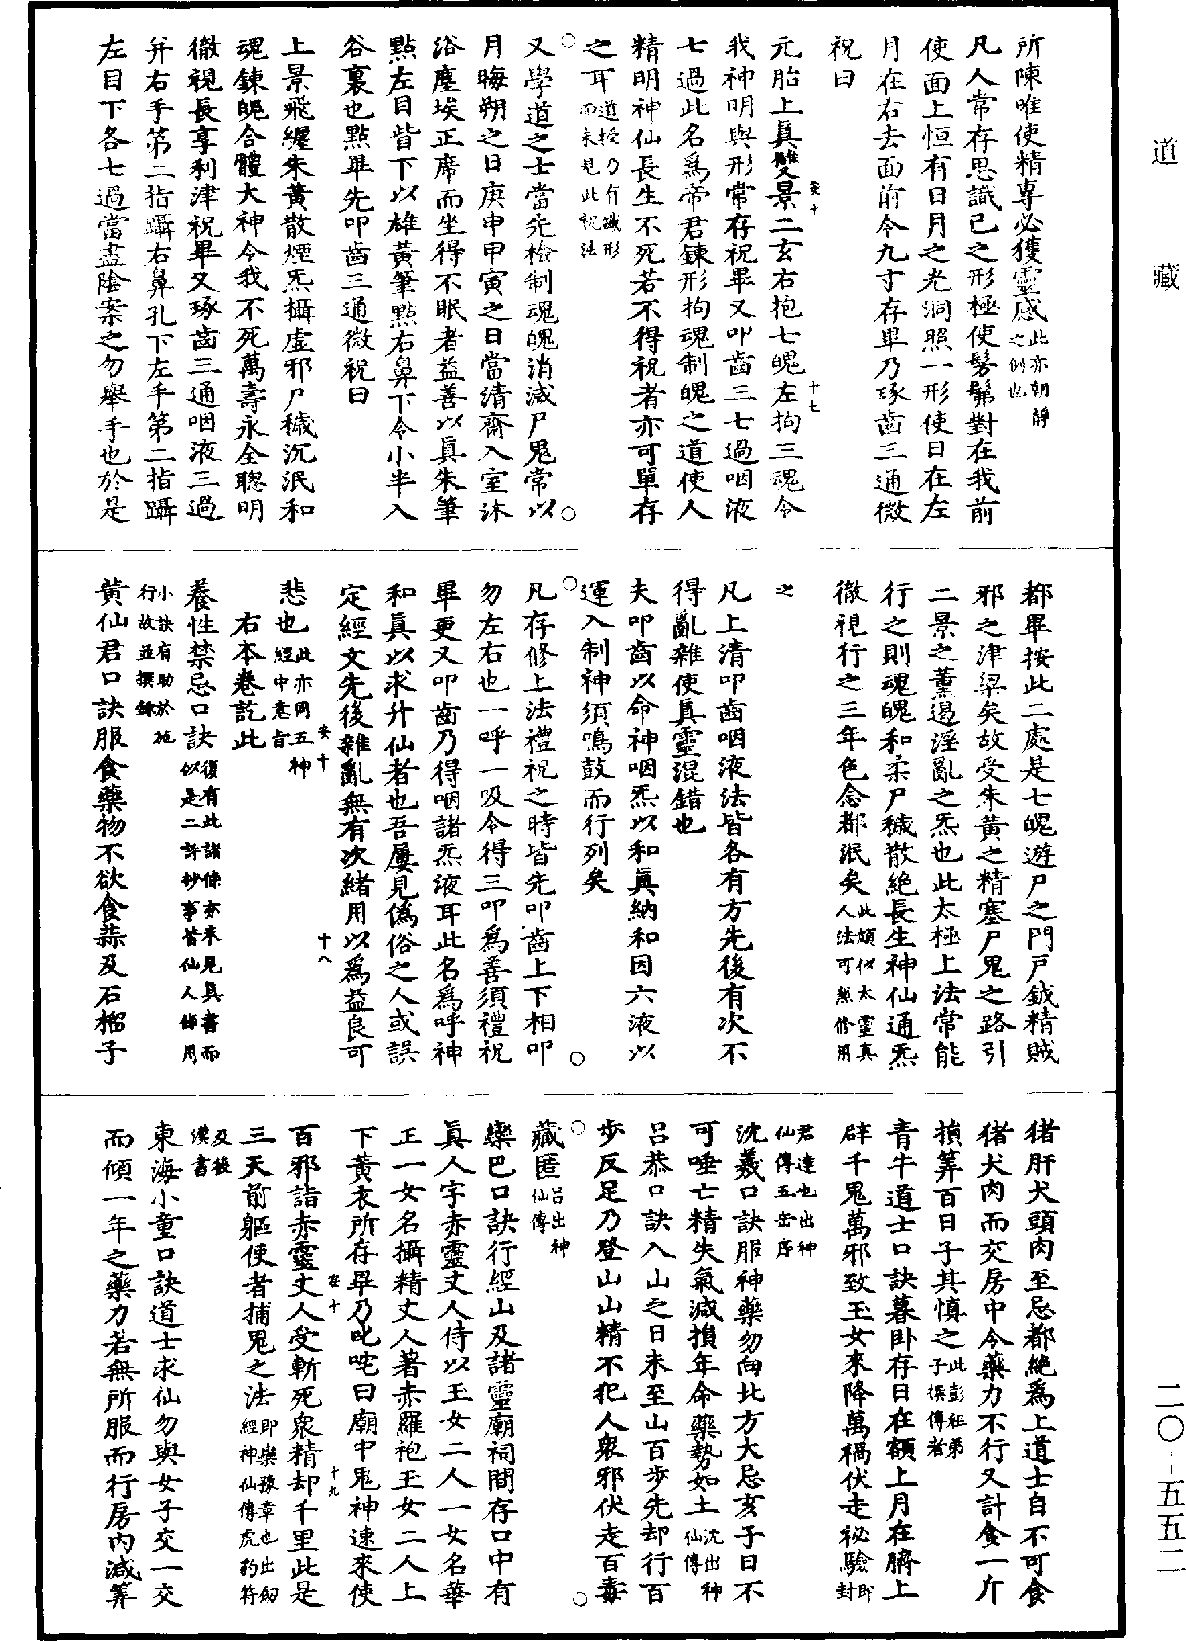 道藏
二〇-五五二
所陳唯使精專必獲靈感此亦朝靜之例也
凡人常存思識己之形極使髣髴對在我前
使面上恒有日月之光洞照一形使日在左
月在右去面前令九寸存畢乃琢齒三通微
祝曰
元胎上真雙景二玄右抱七魄左拘三魂令
安十
十七
我神明與形常存祝畢又叩齒三七過咽液
七過此名爲帝君鍊形拘魂制魄之道使人
精明神仙長生不死若不得祝者亦可單存
之耳道授乃有識形而未見此祝法
又學道之士當先檢制魂魄消滅尸鬼常以
月晦朔之日庚申甲寅之日當清齋入室沐
浴塵埃正席而坐得不眠者益善以真朱筆
點左目眥下以雄黃筆點右鼻下令小半入
谷裏也點畢先叩齒三通微祝曰
上景飛纏朱黃散煙炁攝虛邪尸穢沉泯和
魂鍊魄合體大神令我不死萬壽永全聰明
徹視長享利津祝畢又琢齒三通咽液三過
并右手第二指躡右鼻孔下左手第二指躡
左目下各七過當盡陰案之勿舉手也於是
都畢按此二處是七魄遊尸之門戶鉞精賊
邪之津梁矣故受朱黃之精塞尸鬼之路引
二景之薰遏淫亂之炁也此太極上法常能
行之則魂魄和柔尸穢散絕長生神仙通炁
徹視行之三年色念都泯矣此頗似太靈真人法可兼修用
之
凡上清叩齒咽液法皆各有方先後有次不
得亂雜使真靈混錯也
夫叩齒以命神咽炁以和真納和因六液以
運入制神須鳴鼓而行列矣
凡存修上法禮祝之時皆先叩齒上下相叩
勿左右也一呼一吸令得三叩爲善須禮祝
畢更又叩齒乃得咽諸炁液耳此名爲呼神
和真以求升仙者也吾屢見偽俗之人或誤
定經文先後雜亂無有次緒用以爲益良可
安十
十八
悲也此亦同五神經中意旨
右本卷訖此
養性禁忌口訣復有此諸條亦未見真書而似是二許抄事皆仙人條用
小訣有助於施行故並撰錄
黃仙君口訣服食藥物不欲食蒜及石榴子
猪肝犬頭肉至忌都絕爲上道士自不可食
猪犬肉而交房中令藥力不行又計食一斤
損筭百日子其慎之此彭祖弟子撰傳者
青牛道士口訣暮臥存日在額上月在臍上
辟千鬼萬邪致玉女來降萬禍伏走祕驗即封
君達也出神仙傳五岳序
沈羲口訣服神藥勿向北方大忌亥子日不
可唾亡精失氣減損年命藥勢如土沈出神仙傳
呂恭口訣入山之日未至山百步先却行百
步反足乃登山山精不犯人眾邪伏走百毒
藏匿呂出神仙傳
欒巴口訣行經山及諸靈廟祠間存口中有
真人字赤靈丈人侍以玉女二人一女名華
正一女名攝精丈人著赤羅袍玉女二人上
下黃衣所存畢乃叱咤曰廟中鬼神速來使
安十
十九
百邪詣赤靈丈人受斬死眾精却千里此是
三天前驅使者捕鬼之法即欒豫章也出劒經神仙傳虎豹符
及後漢書
東海小童口訣道士求仙勿與女子交一交
而傾一年之藥力若無所服而行房內減筭